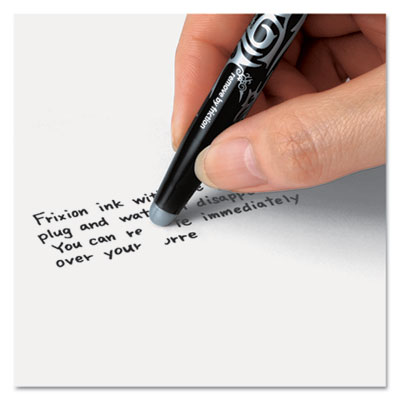 remove by friction
Frixion ink wit
plug and wat disappe
You can re e immediately
over your rre